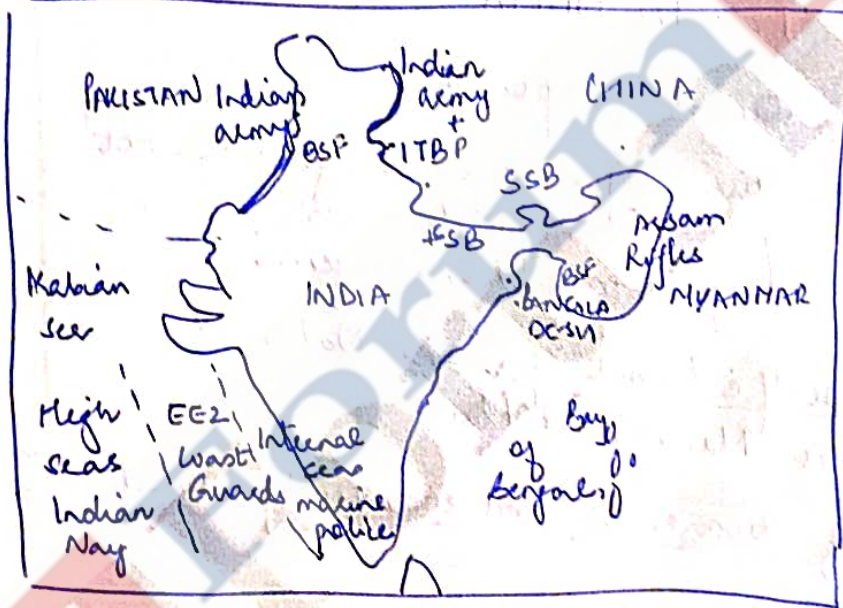 PAKISTAN
Indian
army
BSF
Indian
army
+
ITBP
CHINA
SSB
SSB
Assam
Rifles
MYANMAR
BSF
BANGALA
DESH
INDIA
Arabian
sea
High
seas
Indian
Navy
EEZ
Coast
Guards
Internal
seas
marine
police
Bay
of
Bengal
Forum